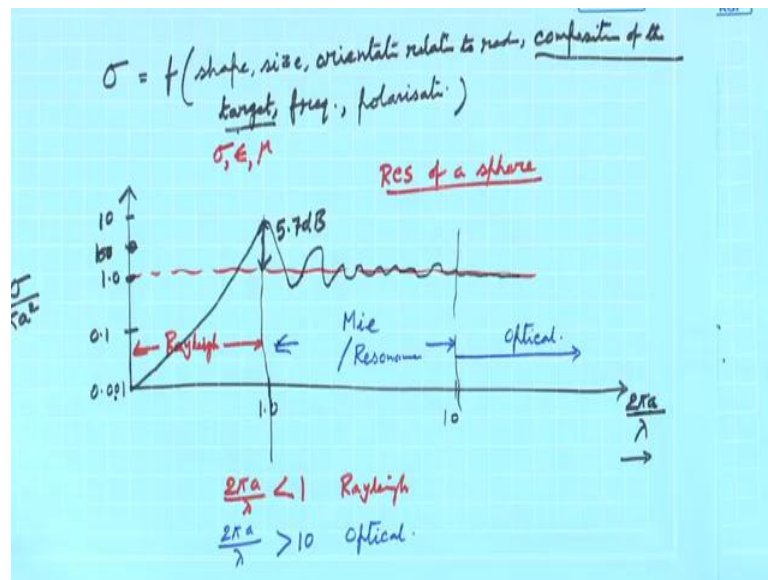 σ = f (shape, size, orientati relati to rad, composition of the
target, freq., polarisati.)
σ, ε, μ
RCS of a sphere
10
5.7dB
1.0
σ
πa²
0.1
Rayleigh
Mie
/Resonance
optical.
0.001
1.0
10
2πa
λ
2πa/λ < 1 Rayleigh
2πa/λ > 10 optical.